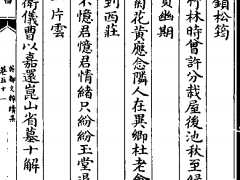 鎖松筠
竹林時曾許分栽屋後池秋至
負幽期
菊花黄應念隣人在異鄉杜老
到西莊
不憶君憶君情緒只紛紛玉堂退
片雲
衛儀曹以嘉還崑山省墓十解